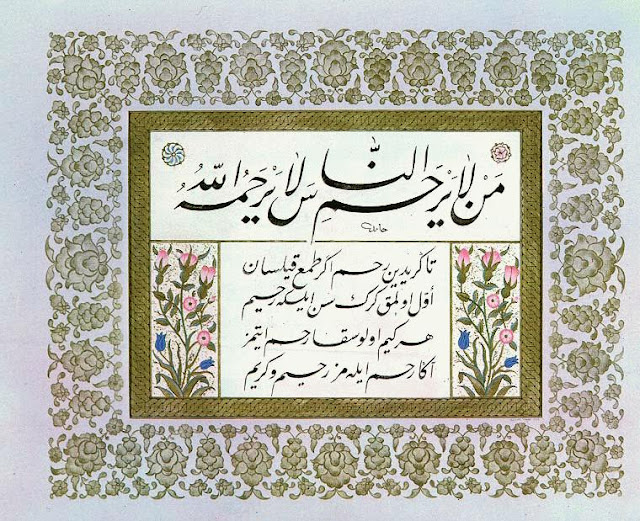 مَنْ لَا يَرْحَمِ النَّاسَ لَا يَرْحَمُهُ اللّٰهُ
تاكريدين رحم اكر طمع قيلسان
اوّل اولمق كرك سن ايلكه رحيم
هر كيم اولوسقا رحم ايتمز
آكا رحم ايله مز رحيم و كريم